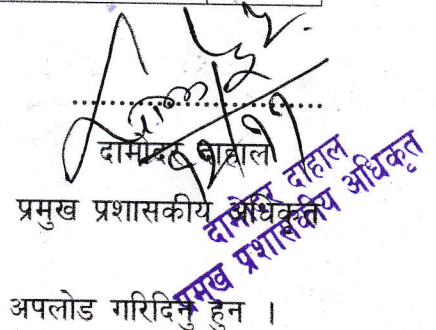 दामोदर दाहाल
प्रमुख प्रशासकीय अधिकृत
दामोदर दाहाल
प्रमुख प्रशासकीय अधिकृत
अपलोड गरिदिनु हुन ।